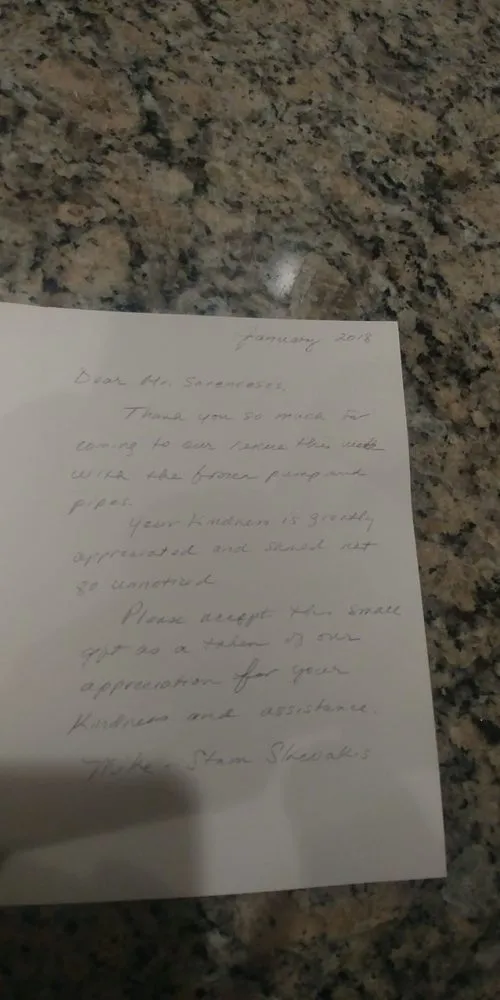 January 2018
Dear Mr.
Thank you so much for
coming to our rescue this week
with the frozen pump and
pipes.
Your kindness is greatly
appreciated and should not
go unnoticed
Please accept this small
gift as a token of our
appreciation for your
Kindness and assistance.
Mike - Stam